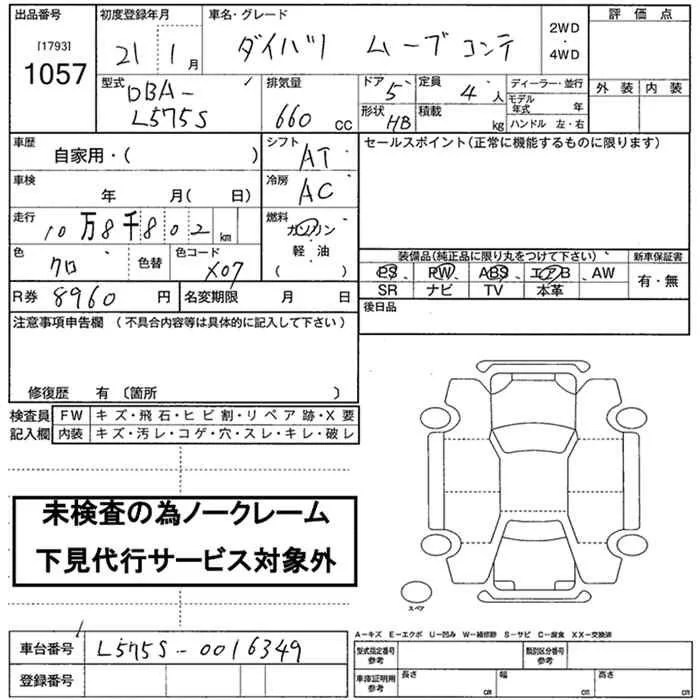 出品番号 初度登録年月 車名・グレード 評価点
[1793] 1057 21 1月 ダイハツ ムーブコンテ 2WD・4WD
型式 排気量 ドア 5 定員 4人 ディーラー・並行 外装 内装
DBA-L575S 660cc 形状 HB 積載 kg モデル年式 年
ハンドル 左・右
車歴 自家用・( ) シフト AT セールスポイント(正常に機能するものに限ります)
車検 年 月( 日) 冷房 AC
走行 10万8千802km 燃料 ガソリン
軽油
( )
色 クロ 色替 色コード X07 装備品(純正品に限り丸をつけて下さい) 新車保証書
PS PW ABS エアB AW 有・無
SR ナビ TV 本革
R券 8960円 名変期限 月 日 後日品
注意事項申告欄 (不具合内容等は具体的に記入して下さい)
修復歴 有 〔箇所 〕
検査員 FW キズ・飛石・ヒビ割・リペア跡・X要
記入欄 内装 キズ・汚レ・コゲ・穴・スレ・キレ・破レ
未検査の為ノークレーム
下見代行サービス対象外
スペア
A-キズ E-エクボ U-凹み W-補修跡 S-サビ C-腐食 XX-交換済
車台番号 L575S-0016349 型式指定番号 参考 類別区分番号 参考
登録番号 車庫証明用 参考 長さ cm 幅 cm 高さ cm